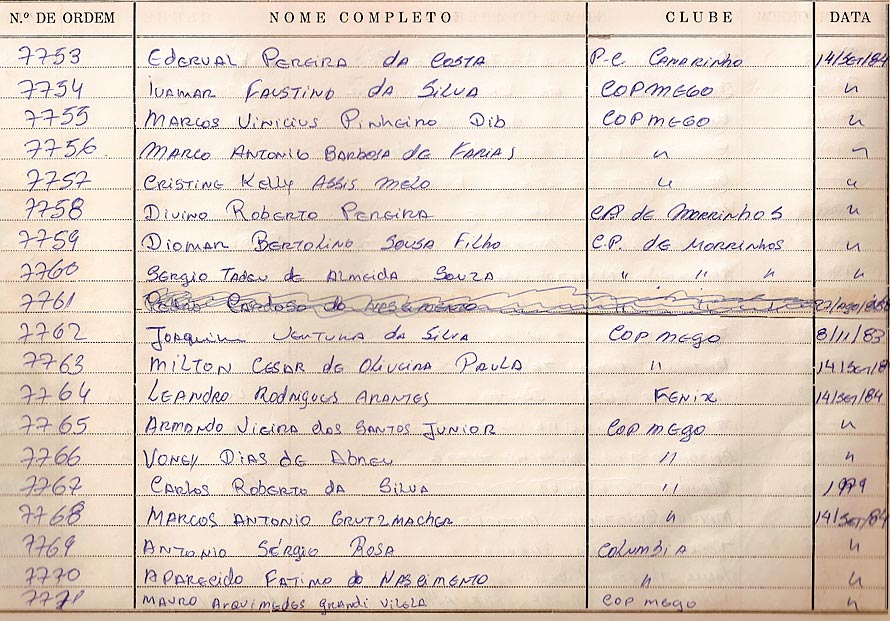 N.º DE ORDEM NOME COMPLETO CLUBE DATA
7753 EDERVAL PEREIRA DA COSTA P.C. CAMARINHO 14/SET/84
7754 IVAMAR FAUSTINO DA SILVA COPMEGO "
7755 MARCOS VINICIUS PINHEIRO DIB COPMEGO "
7756 MARCO ANTONIO BARBOSA DE FARIAS " "
7757 CRISTINE KELLY ASSIS MELO " "
7758 DIVINO ROBERTO PEREIRA C.P. DE MORRINHOS "
7759 DIOMAR BERTOLINO SOUSA FILHO C.P. DE MORRINHOS "
7760 SERGIO TADEU DE ALMEIDA SOUZA " " " "
7761 CARDOSO DO NASCIMENTO
7762 JOAQUIM VENTURA DA SILVA COPMEGO 8/11/83
7763 MILTON CESAR DE OLIVEIRA PAULA " 14/SET/8
7764 LEANDRO RODRIGUES ARANTES FENIX 14/SET/84
7765 ARMANDO VIEIRA DOS SANTOS JUNIOR COPMEGO "
7766 VONEY DIAS DE ABREU " "
7767 CARLOS ROBERTO DA SILVA " 1979
7768 MARCOS ANTONIO GRUTZMACHER " 14/SET/84
7769 ANTONIO SÉRGIO ROSA COLUMBIA "
7770 APARECIDO FATIMO DO NASCIMENTO " "
7771 MAURO ARQUIMEDES GRANDI VILELA COPMEGO "